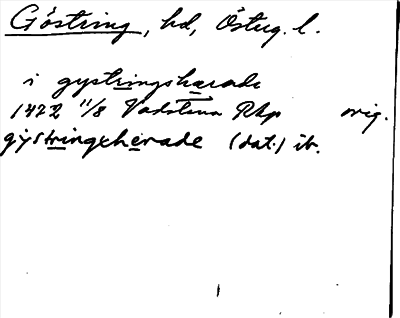 Göstring, hd, Österg. l.
i gystringshærade
1472 11/8 Vadstena Rkp orig.
gystringxherade (dat.) ib.